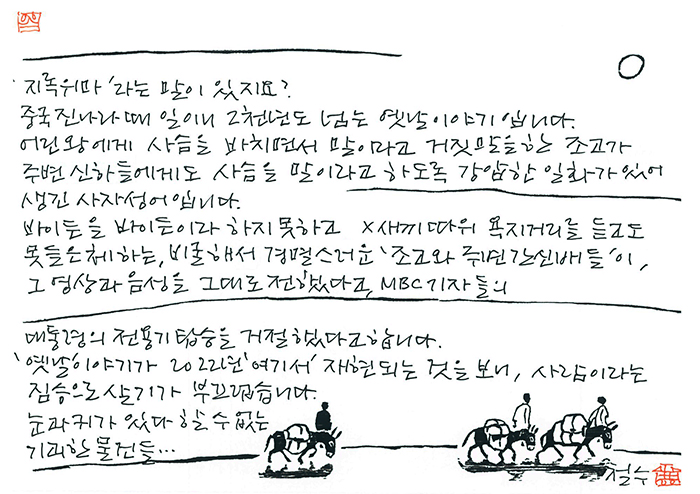 '지록위마'라는 말이 있지요?
중국 진나라 때 일이니 2천년도 넘는 옛날이야기입니다.
어린왕에게 사슴을 바치면서 말이라고 거짓말을하는 조고가
주변 신하들에게도 사슴을 말이라고 하도록 강압한 일화가 있어
생긴 사자성어입니다.
바이든을 바이든이라 하지못하고 X새끼 따위 욕지거리를 듣고도
못들은체하는, 비굴해서 경멸스러운 '조고와 주변간신배들'이,
그 영상과 음성을 그대로 전했다고, MBC기자들의
대통령의 전용기 탑승을 거절했다고합니다.
'옛날'이야기가 2022년 '여기서' 재현되는 것을 보니, 사람이라는
짐승으로 살기가 부끄럽습니다.
눈과 귀가 있다 할 수 없는
기괴한 물건들…
철수